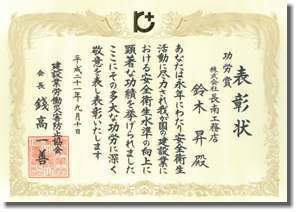 表彰状
功労賞
株式会社長南工務店
鈴木 昇 殿
あなたは永年にわたり安全衛生
活動に尽力され我が国の建設業に
おける安全衛生水準の向上に
顕著な功績を挙げられました
ここにその多大な功労に深く
敬意を表し表彰いたします
平成二十一年九月十日
建設業労働災害防止協会
会長 錢高 一善